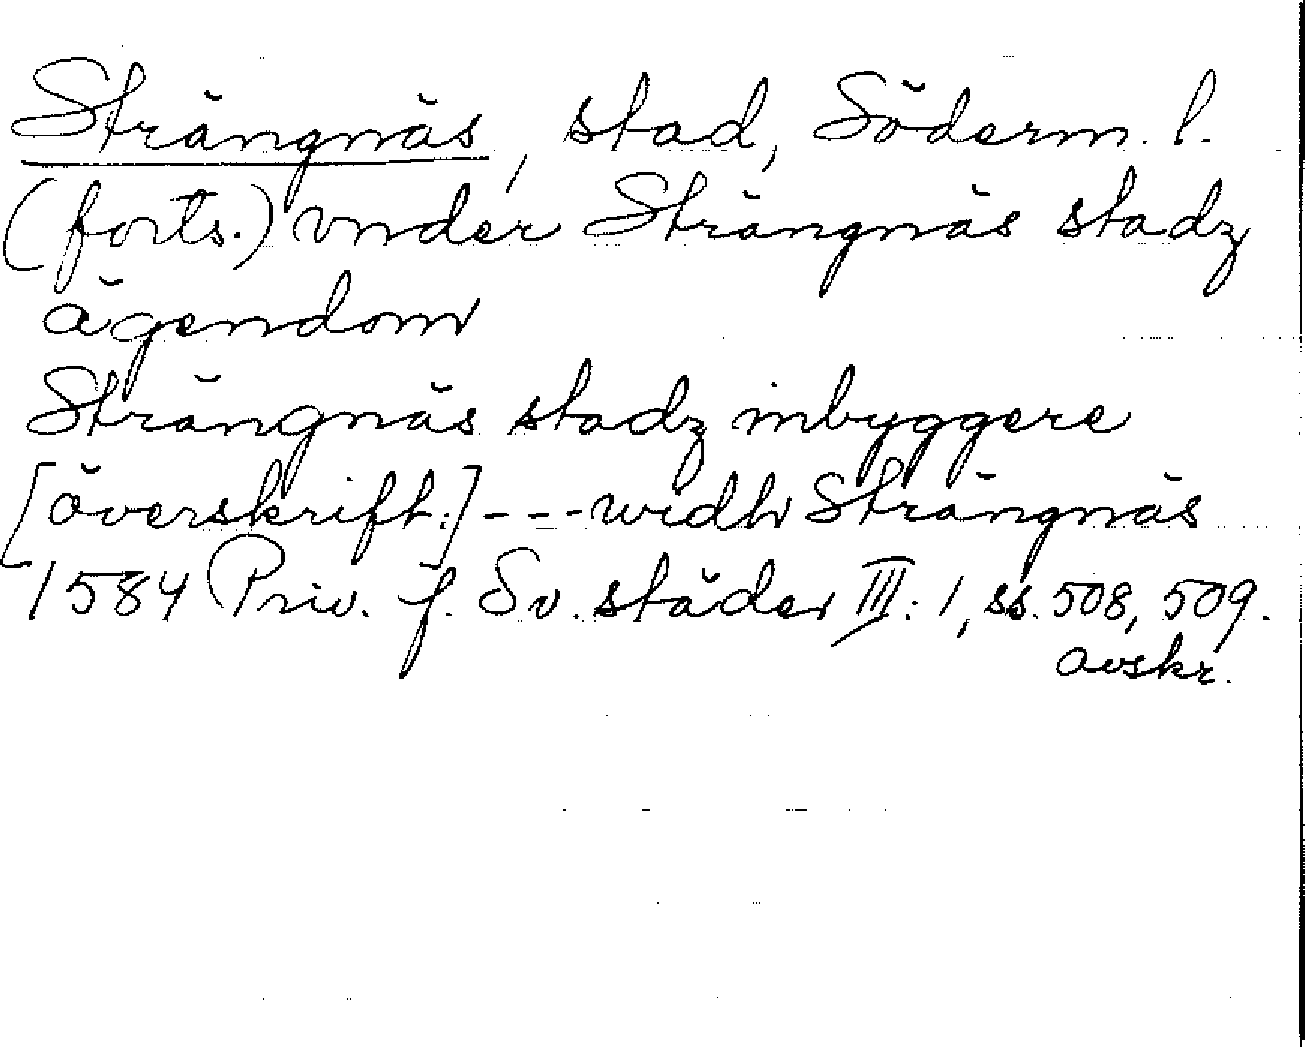 Strängnäs, stad, Söderm. l.
(forts.) vnder Strängnäs stadz
ägendom
Strängnäs stadz inbyggere
[överskrift:] --- widh Strängnäs
1584 Priv. f. Sv. städer III: 1, ss. 508, 509.
avskr.